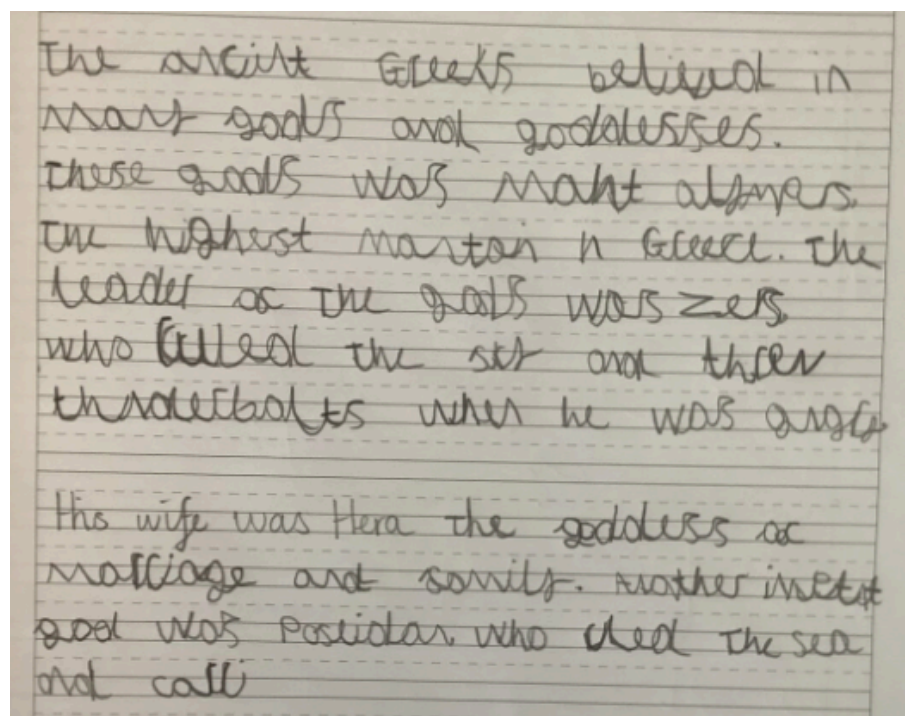 The ancint Greeks belived in
many gods and goddesses.
These gods was maht olymps.
The highest mantan n Greece. The
leader of the gods was zeis
who rulled the sky and threw
thnderbolts when he was angry
His wife was Hera the goddess of
marriage and family. Another
god was Poseidon who the sea
and